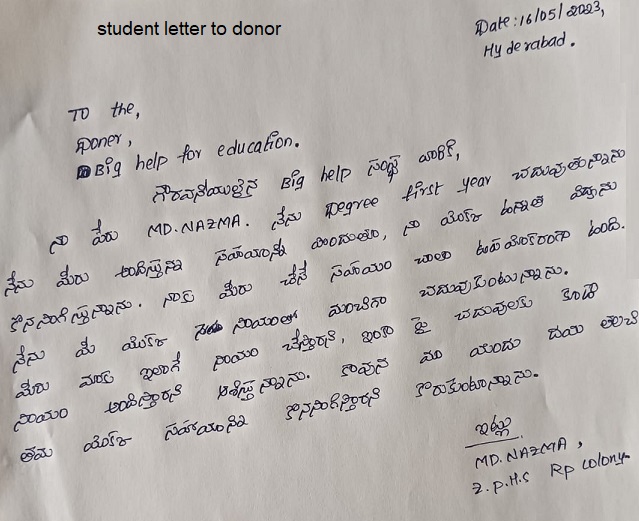 student letter to donor
Date:16/05/2023,
Hyderabad.
To the,
Doner,
Big help for education.
గౌరవనీయులైన Big help సంస్థ వారికి,
నా పేరు MD.NAZMA. నేను Degree first year చదువుతున్నాను
నేను మీరు అందిస్తున్న సహాయంన్ని పొందుతూ, నా యొక్క ఉన్నత విద్యను
కొనసాగిస్తున్నాను. నాకు మీరు చేసే సహాయం చాలా ఉపయోకరంగా ఉంది.
నేను మీ యొక్క సాయంతో మంచిగా చదువుకుంటున్నాను.
మీరు మాకు ఇలాగే సాయం చేస్తారని, ఇంకా పై చదువులకు కూడా
సాయం అందిస్తారని ఆశిస్తున్నాను. కావున మా యందు దయ తలచి
తమ యొక్క సహాయంని కొనసాగిస్తారని కోరుకుంటూన్నాను.
ఇట్లు
MD.NAZMA,
Z.P.H.S Rp colony.